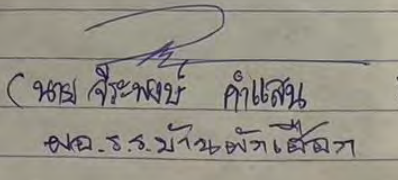 (นาย จีระพงษ์ คำแสน
ผอ.ร.ร.บ้านผักเฮือก